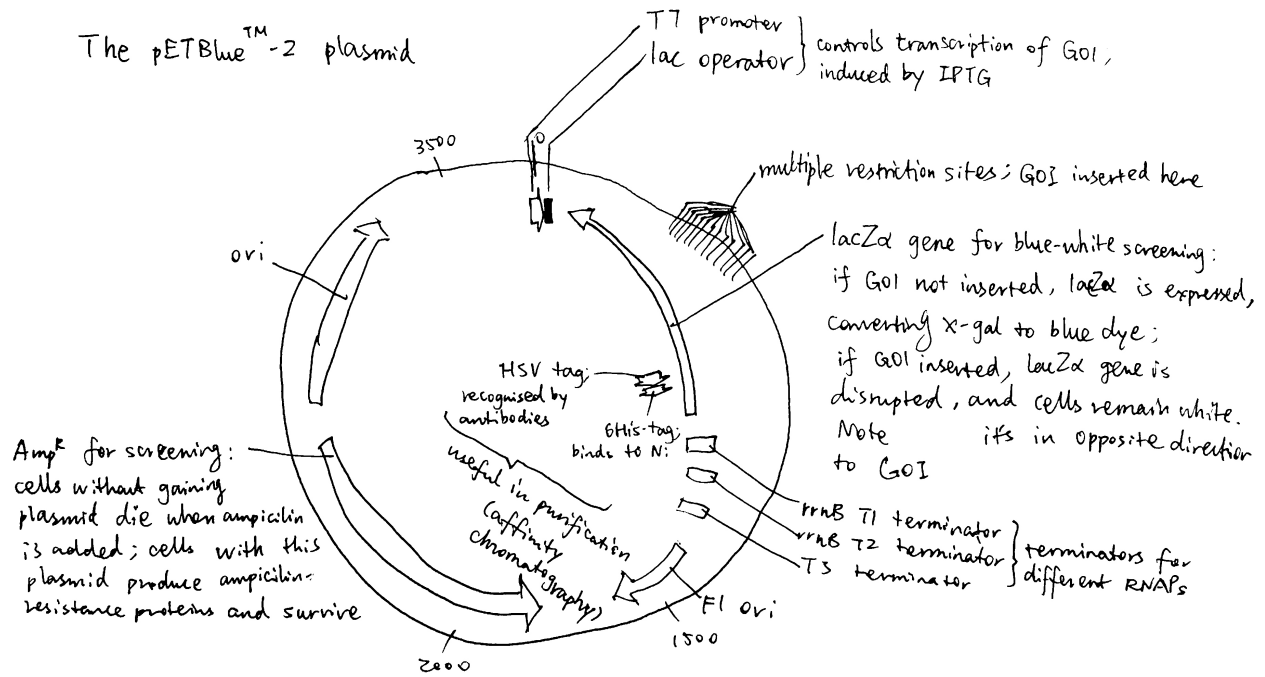 The pETBlue™-2 plasmid
T7 promoter
lac operator
controls transcription of GOI,
induced by IPTG
3500
multiple restriction sites; GOI inserted here
ori
lacZα gene for blue-white screening:
if GOI not inserted, lacZα is expressed,
converting X-gal to blue dye;
if GOI inserted, lacZα gene is
disrupted, and cells remain white.
Note it's in opposite direction
to GOI
HSV tag;
recognised by
antibodies
6His-tag;
binds to Ni
useful in purification
(affinity
chromatography)
Ampᴿ for screening:
cells without gaining
plasmid die when ampicilin
is added; cells with this
plasmid produce ampicilin-
resistance proteins and survive
rrnB T1 terminator
rrnB T2 terminator
T3 terminator
terminators for
different RNAPs
F1 ori
1500
2000